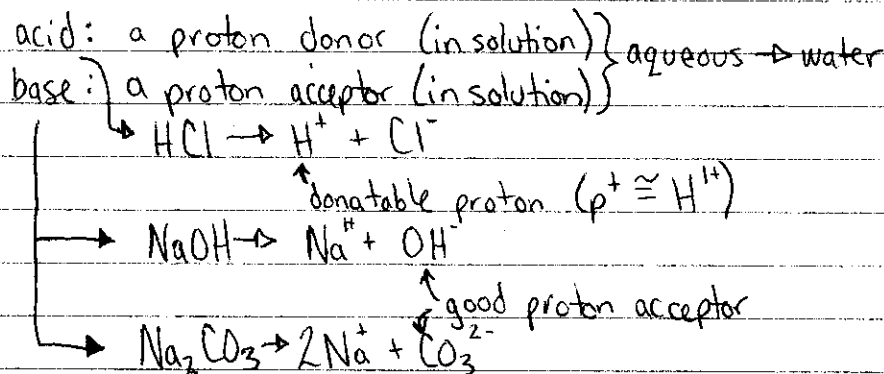 acid: a proton donor (in solution)} aqueous → water
base: a proton acceptor (in solution)
HCl → H⁺ + Cl⁻
donatable proton (p⁺ ≅ H¹⁺)
NaOH → Na⁺ + OH⁻
good proton acceptor
Na₂CO₃ → 2Na⁺ + CO₃²⁻